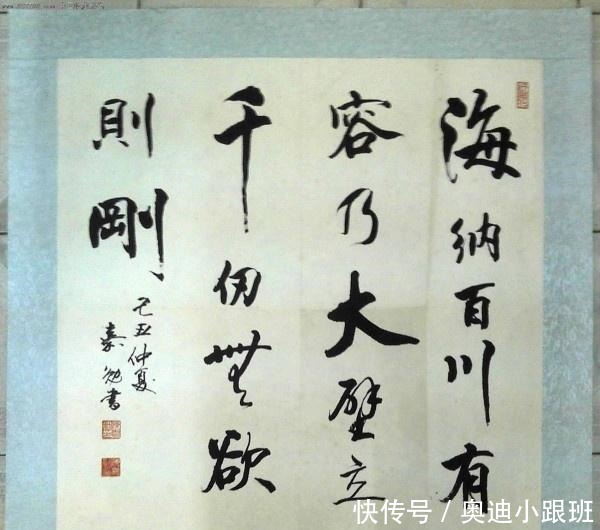 海納百川有
容乃大壁立
千仞無欲
則剛
己丑仲夏
秦勉書
快传号/奥迪小跟班